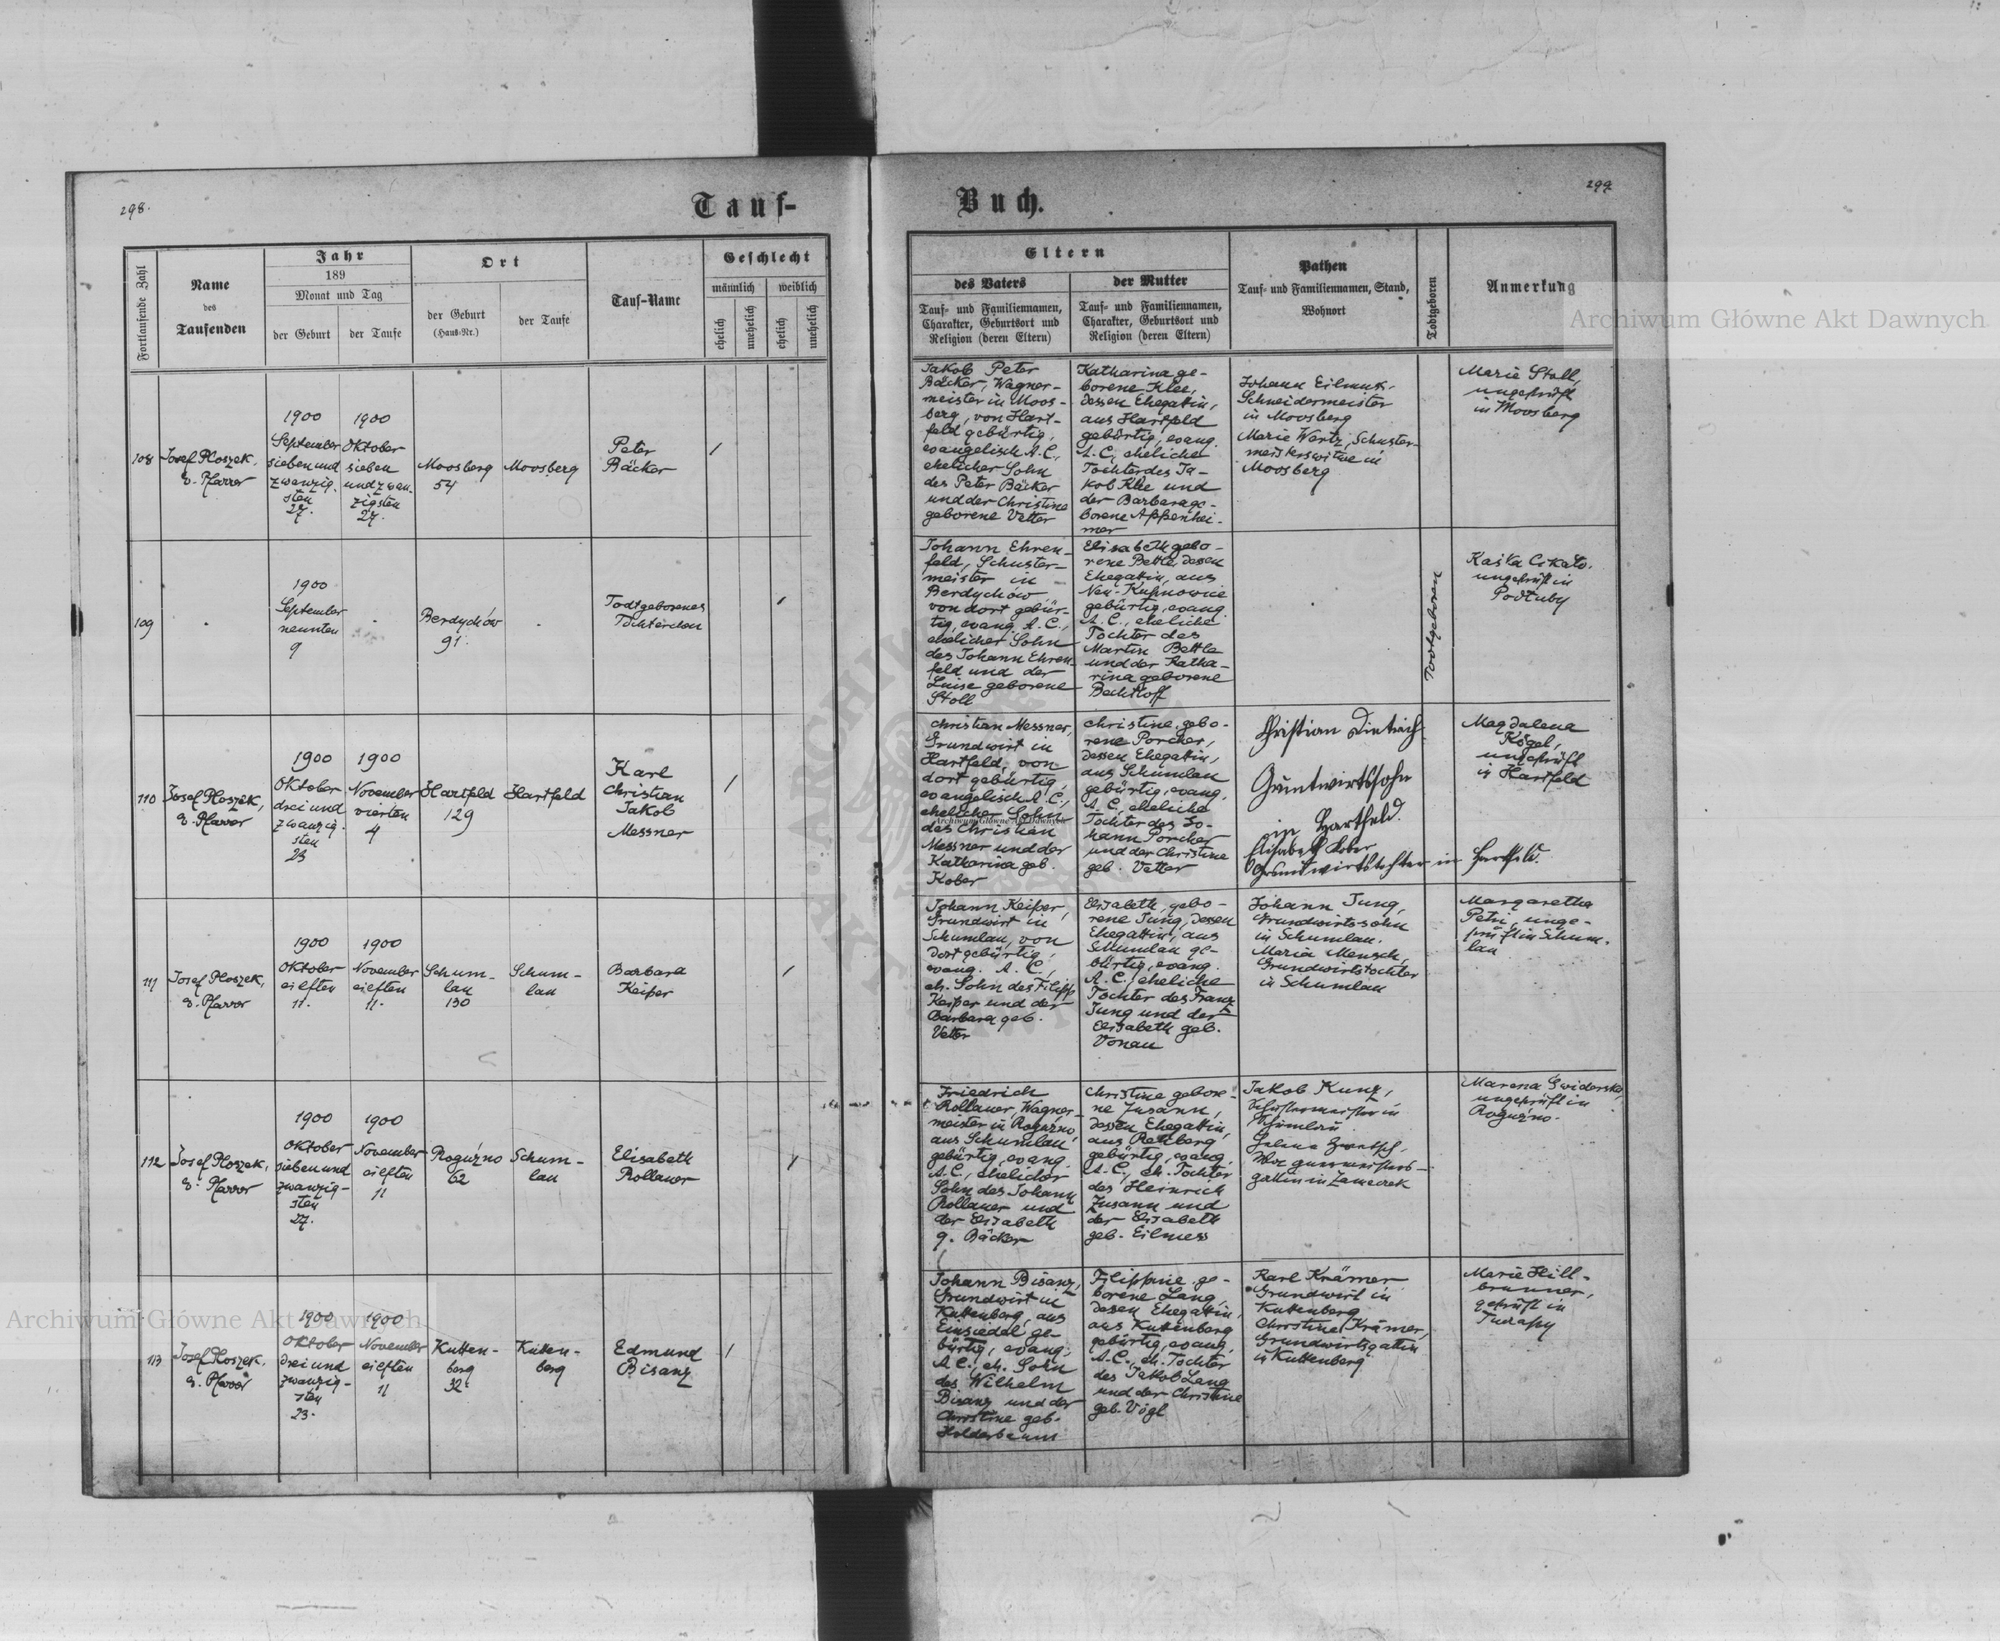 298.
299
Tauf-
Buch.
Fortlaufende Zahl
Name
des
Taufenden
Jahr
189
Monat und Tag
der Geburt
der Taufe
Ort
der Geburt
(Haus-Nr.)
der Taufe
Tauf-Name
Geschlecht
männlich
weiblich
ehelich
unehelich
ehelich
unehelich
Eltern
des Vaters
Tauf- und Familiennamen,
Charakter, Geburtsort und
Religion (deren Eltern)
der Mutter
Tauf- und Familiennamen,
Charakter, Geburtsort und
Religion (deren Eltern)
Pathen
Tauf- und Familiennamen, Stand,
Wohnort
Todtgeboren
Anmerkung
Archiwum Główne Akt Dawnych
108
Josef Ploszek,
e. Pfarrer
1900
September
sieben und
zwanzig-
sten
27.
1900
Oktober
sieben
und zwan-
zigsten
27.
Moosberg
54
Moosberg
Peter
Bäcker
/
Jakob Peter
Bäcker, Wagner-
meister in Moos-
berg, von Hart-
feld gebürtig,
evangelisch A.C.,
ehelicher Sohn
des Peter Bäcker
und der Christine
geborene Vetter
Katharina ge-
borene Klee,
dessen Ehegattin,
aus Hartfeld
gebürtig, evang.
A.C., eheliche
Tochter des Ja-
kob Klee und
der Barbara ge-
borene Appenhei-
mer
Johann
Schneidermeister
in Moosberg
Marie Wertz, Schuster-
meisterswitwe in
Moosberg
Marie Stoll,
ungeprüft
in Moosberg
109
1900
September
neunten
9
Berdychów
91.
Todtgeborenes
Töchterchen
/
Johann Ehren-
feld, Schuster-
meister in
Berdychów
von dort gebür-
tig, evang. A.C.,
ehelicher Sohn
des Johann Ehren-
feld und der
Luise geborene
Stoll
Elisabeth gebo-
rene Bettle, dessen
Ehegattin, aus
Neu-Kupnowice
gebürtig, evang.
A.C., eheliche
Tochter des
Martin Bettle
und der Katha-
rina geborene
Bechtloff
Todtgeboren
Kaśka
ungeprüft in
Podłuby
110
Josef Ploszek,
e. Pfarrer
1900
Oktober
drei und
zwanzig-
sten
23
1900
November
vierten
4
Hartfeld
129
Hartfeld
Karl
Christian
Jakob
Messner
/
Christian Messner,
Grundwirt in
Hartfeld, von
dort gebürtig,
evangelisch A.C.,
ehelicher Sohn
Archiwum Główne Akt Dawnych
des Christian
Messner und der
Katharina geb.
Kober
Christine gebo-
rene Porcher,
dessen Ehegattin,
aus Schumlau
gebürtig, evang.
A.C., eheliche
Tochter des Jo-
hann Porcher
und der Christine
geb. Vetter
Christian Dietrich
Grundwirtssohn
in Hartfeld.
Elisabeth Kober
Grundwirtstochter in Hartfeld.
Magdalena
Kögel,
ungeprüft
in Hartfeld
111
Josef Ploszek,
e. Pfarrer
1900
Oktober
eilften
11.
1900
November
eilften
11.
Schum-
lau
130
Schum-
lau
Barbara
Keiper
/
Johann Keiper,
Grundwirt in
Schumlau, von
dort gebürtig,
evang. A.C.,
eh. Sohn des Filipp
Keiper und der
Barbara geb.
Vetter
Elisabeth, gebo-
rene Jung, dessen
Ehegattin, aus
Schumlau ge-
bürtig, evang.
A.C., eheliche
Tochter des Franz
Jung und der
Elisabeth geb.
Vonau
Johann Jung,
Grundwirtssohn
in Schumlau.
Maria Mensch,
Grundwirtstochter
in Schumlau
Margaretha
Petri, unge-
prüft in Schum-
lau
112
Josef Ploszek,
e. Pfarrer
1900
Oktober
sieben und
zwanzig-
sten
27.
1900
November
eilften
11
Roguźno
62
Schum-
lau
Elisabeth
Rollauer
/
Friedrich
Rollauer, Wagner-
meister in Roguźno,
aus Schumlau
gebürtig, evang.
A.C., ehelicher
Sohn des Johann
Rollauer und
der Elisabeth
g. Bäcker
Christine gebore-
ne Zusann,
dessen Ehegattin,
aus Rehberg
gebürtig, evang.
A.C., eh. Tochter
des Heinrich
Zusann und
der Elisabeth
geb. Eilmess
Jakob Kunz,
Schustermeister in
Schumlau
Wagnermeisters-
gattin in Zameczek
Marena Swiderska,
ungeprüft in
Roguźno.
113
Josef Ploszek,
e. Pfarrer
1900
Oktober
drei und
zwanzig-
sten
23.
1900
November
eilften
11
Kutten-
berg
32
Kutten-
berg
Edmund
Bisanz
/
Johann Bisanz,
Grundwirt in
Kuttenberg, aus
Einsiedel ge-
bürtig, evang.
A.C., eh. Sohn
des Wilhelm
Bisanz und der
Christine geb.
Holderbaum
Filippine ge-
borene Lang,
dessen Ehegattin,
aus Kuttenberg
gebürtig, evang.
A.C., eh. Tochter
des Jakob Lang
und der Christine
geb. Vögl
Karl Krämer
Grundwirt in
Kuttenberg
Christine Krämer,
Grundwirtsgattin
in Kuttenberg
Marie Hill-
brunner,
geprüft in
Tuczapy
Archiwum Główne Akt Dawnych